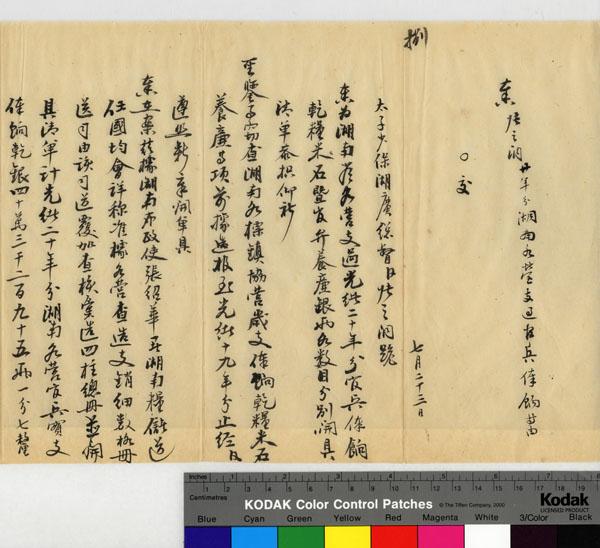 捌
奏 張之洞 廿年分湖南各營支過官兵俸餉等
〇交
七月二十三日
太子少保湖廣總督臣張之洞跪
奏為湖南省各營支過光緒二十年分官兵俸餉
乾糧米石暨官弁養廉銀兩各數目分別開具
清單恭摺仰祈
聖鑒事竊查湖南各標鎮協營歲支俸餉乾糧米石
養廉等項前據造報至光緒十九年分止經臣
遵照新章開單具
奏立案茲據湖南布政使張紹華署湖南糧儲道
任國均會詳稱准據各營查造支銷細數植冊
送司由該司道覆加查核彙造四柱總冊並開
具清單計光緒二十年分湖南各營官兵實支
俸餉乾銀四十萬三千二百九十五兩一分七釐
Inches 1 2 3 4 5 6 7 8
Centimetres 1 2 3 4 5 6 7 8 9 10 11 12 13 14 15 16 17 18 19
KODAK Color Control Patches
© The Tiffen Company, 2000
Kodak
LICENSED PRODUCT
Blue Cyan Green Yellow Red Magenta White 3/Color Black